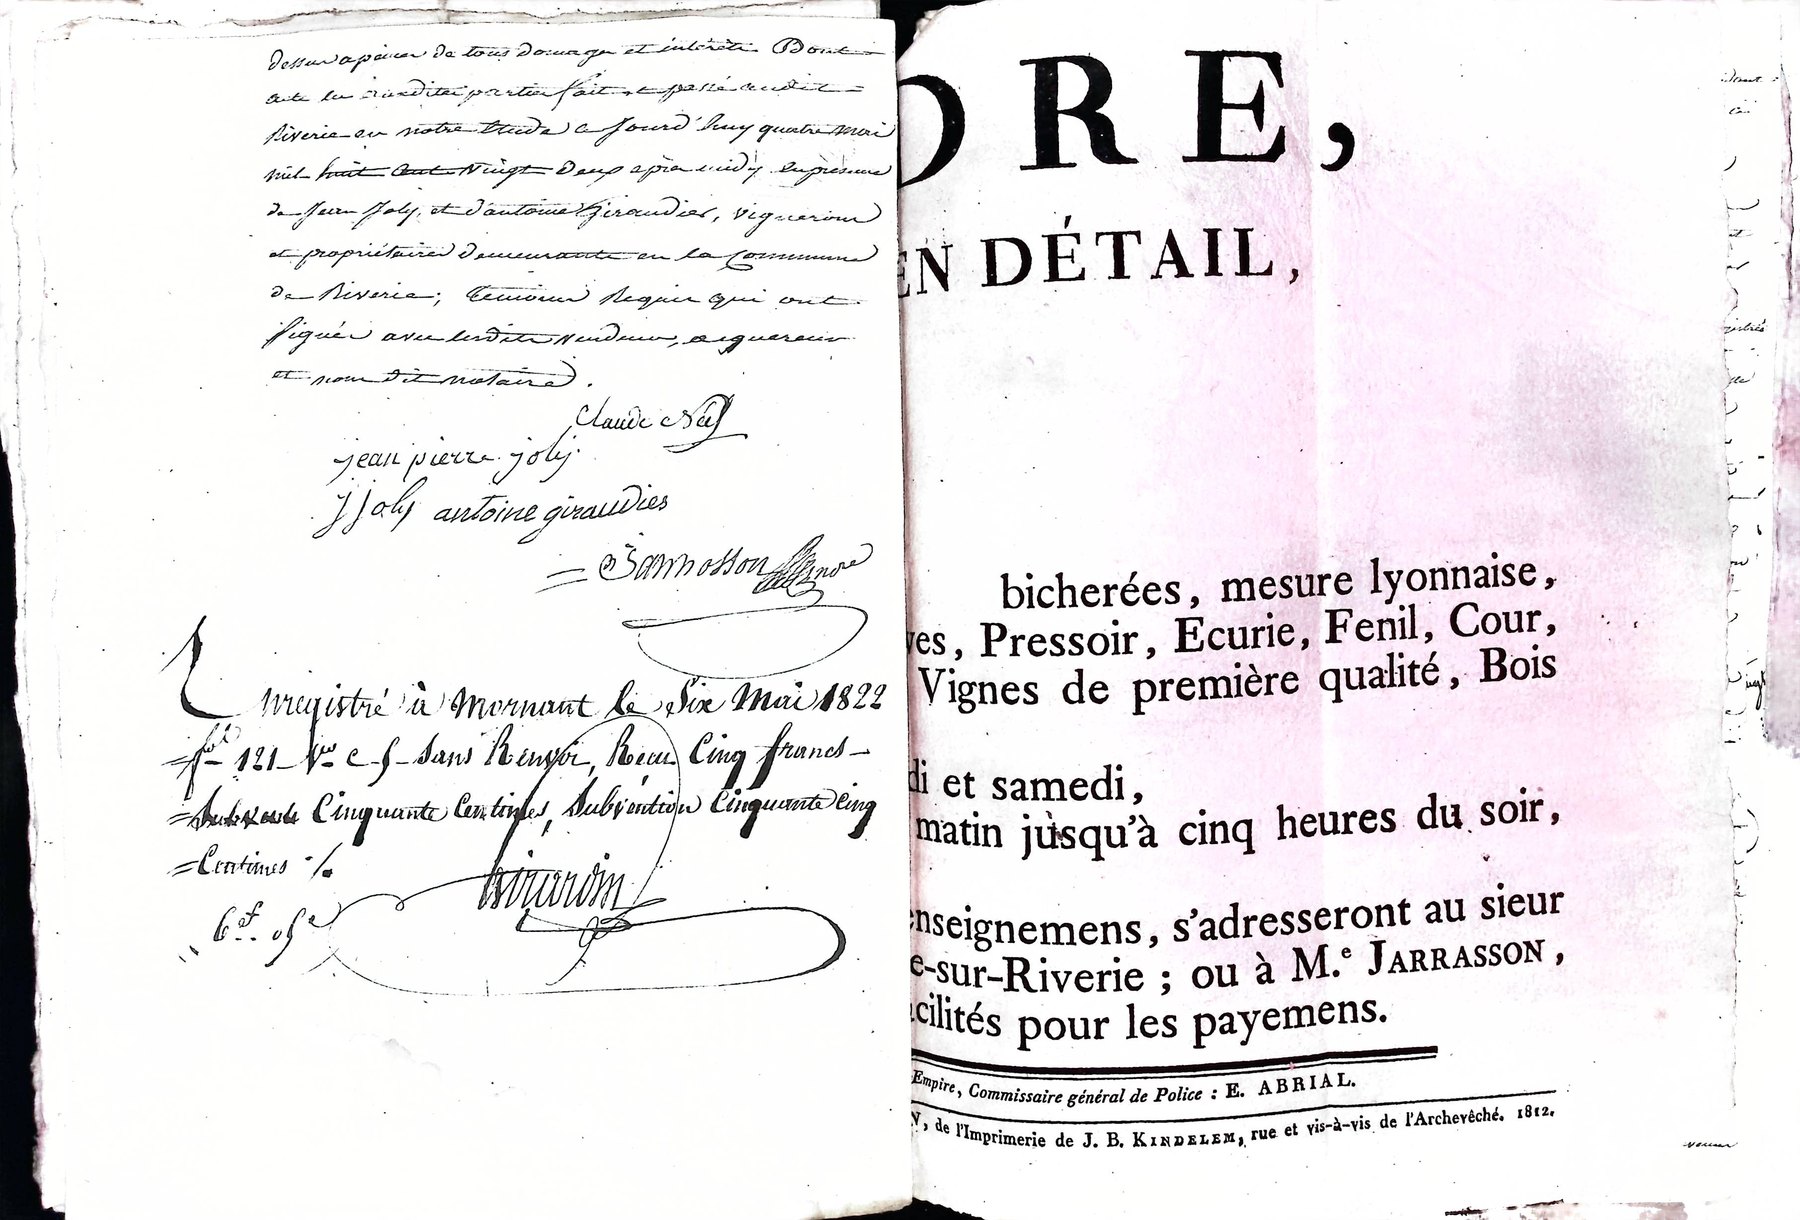 dessus a peine de tous domages et intérêts Dont
acte les susdites parties fait et passé audit
Riverie en notre Etude ce jourd'huy quatre mai
mil huit cent vingt deux après midy en présence
de Jean Joly, et d'antoine Giraudier, vignerons
et propriétaires demeurants en la Commune
de Riverie; témoins Requis qui ont
signés avec lesdits vendeur, acquereur
et nous dit notaire.
Claude
jean pierre joly
j joly antoine giraudier
Enregistré à Mornant le Six Mai 1822
f.o 121 V.o C 5 Sans Renvoi, Reçu Cinq francs
Cinquante Centimes, Subvention Cinquante Cinq
Centimes ./.
6f 05c
ORE,
EN DÉTAIL,
bicherées, mesure lyonnaise,
ves, Pressoir, Ecurie, Fenil, Cour,
Vignes de première qualité, Bois
di et samedi,
matin jusqu'à cinq heures du soir,
enseignemens, s'adresseront au sieur
e-sur-Riverie ; ou à M.e JARRASSON,
acilités pour les payemens.
Empire, Commissaire général de Police : E. ABRIAL.
N, de l'Imprimerie de J. B. KINDELEM, rue et vis-à-vis de l'Archevêché. 1812.